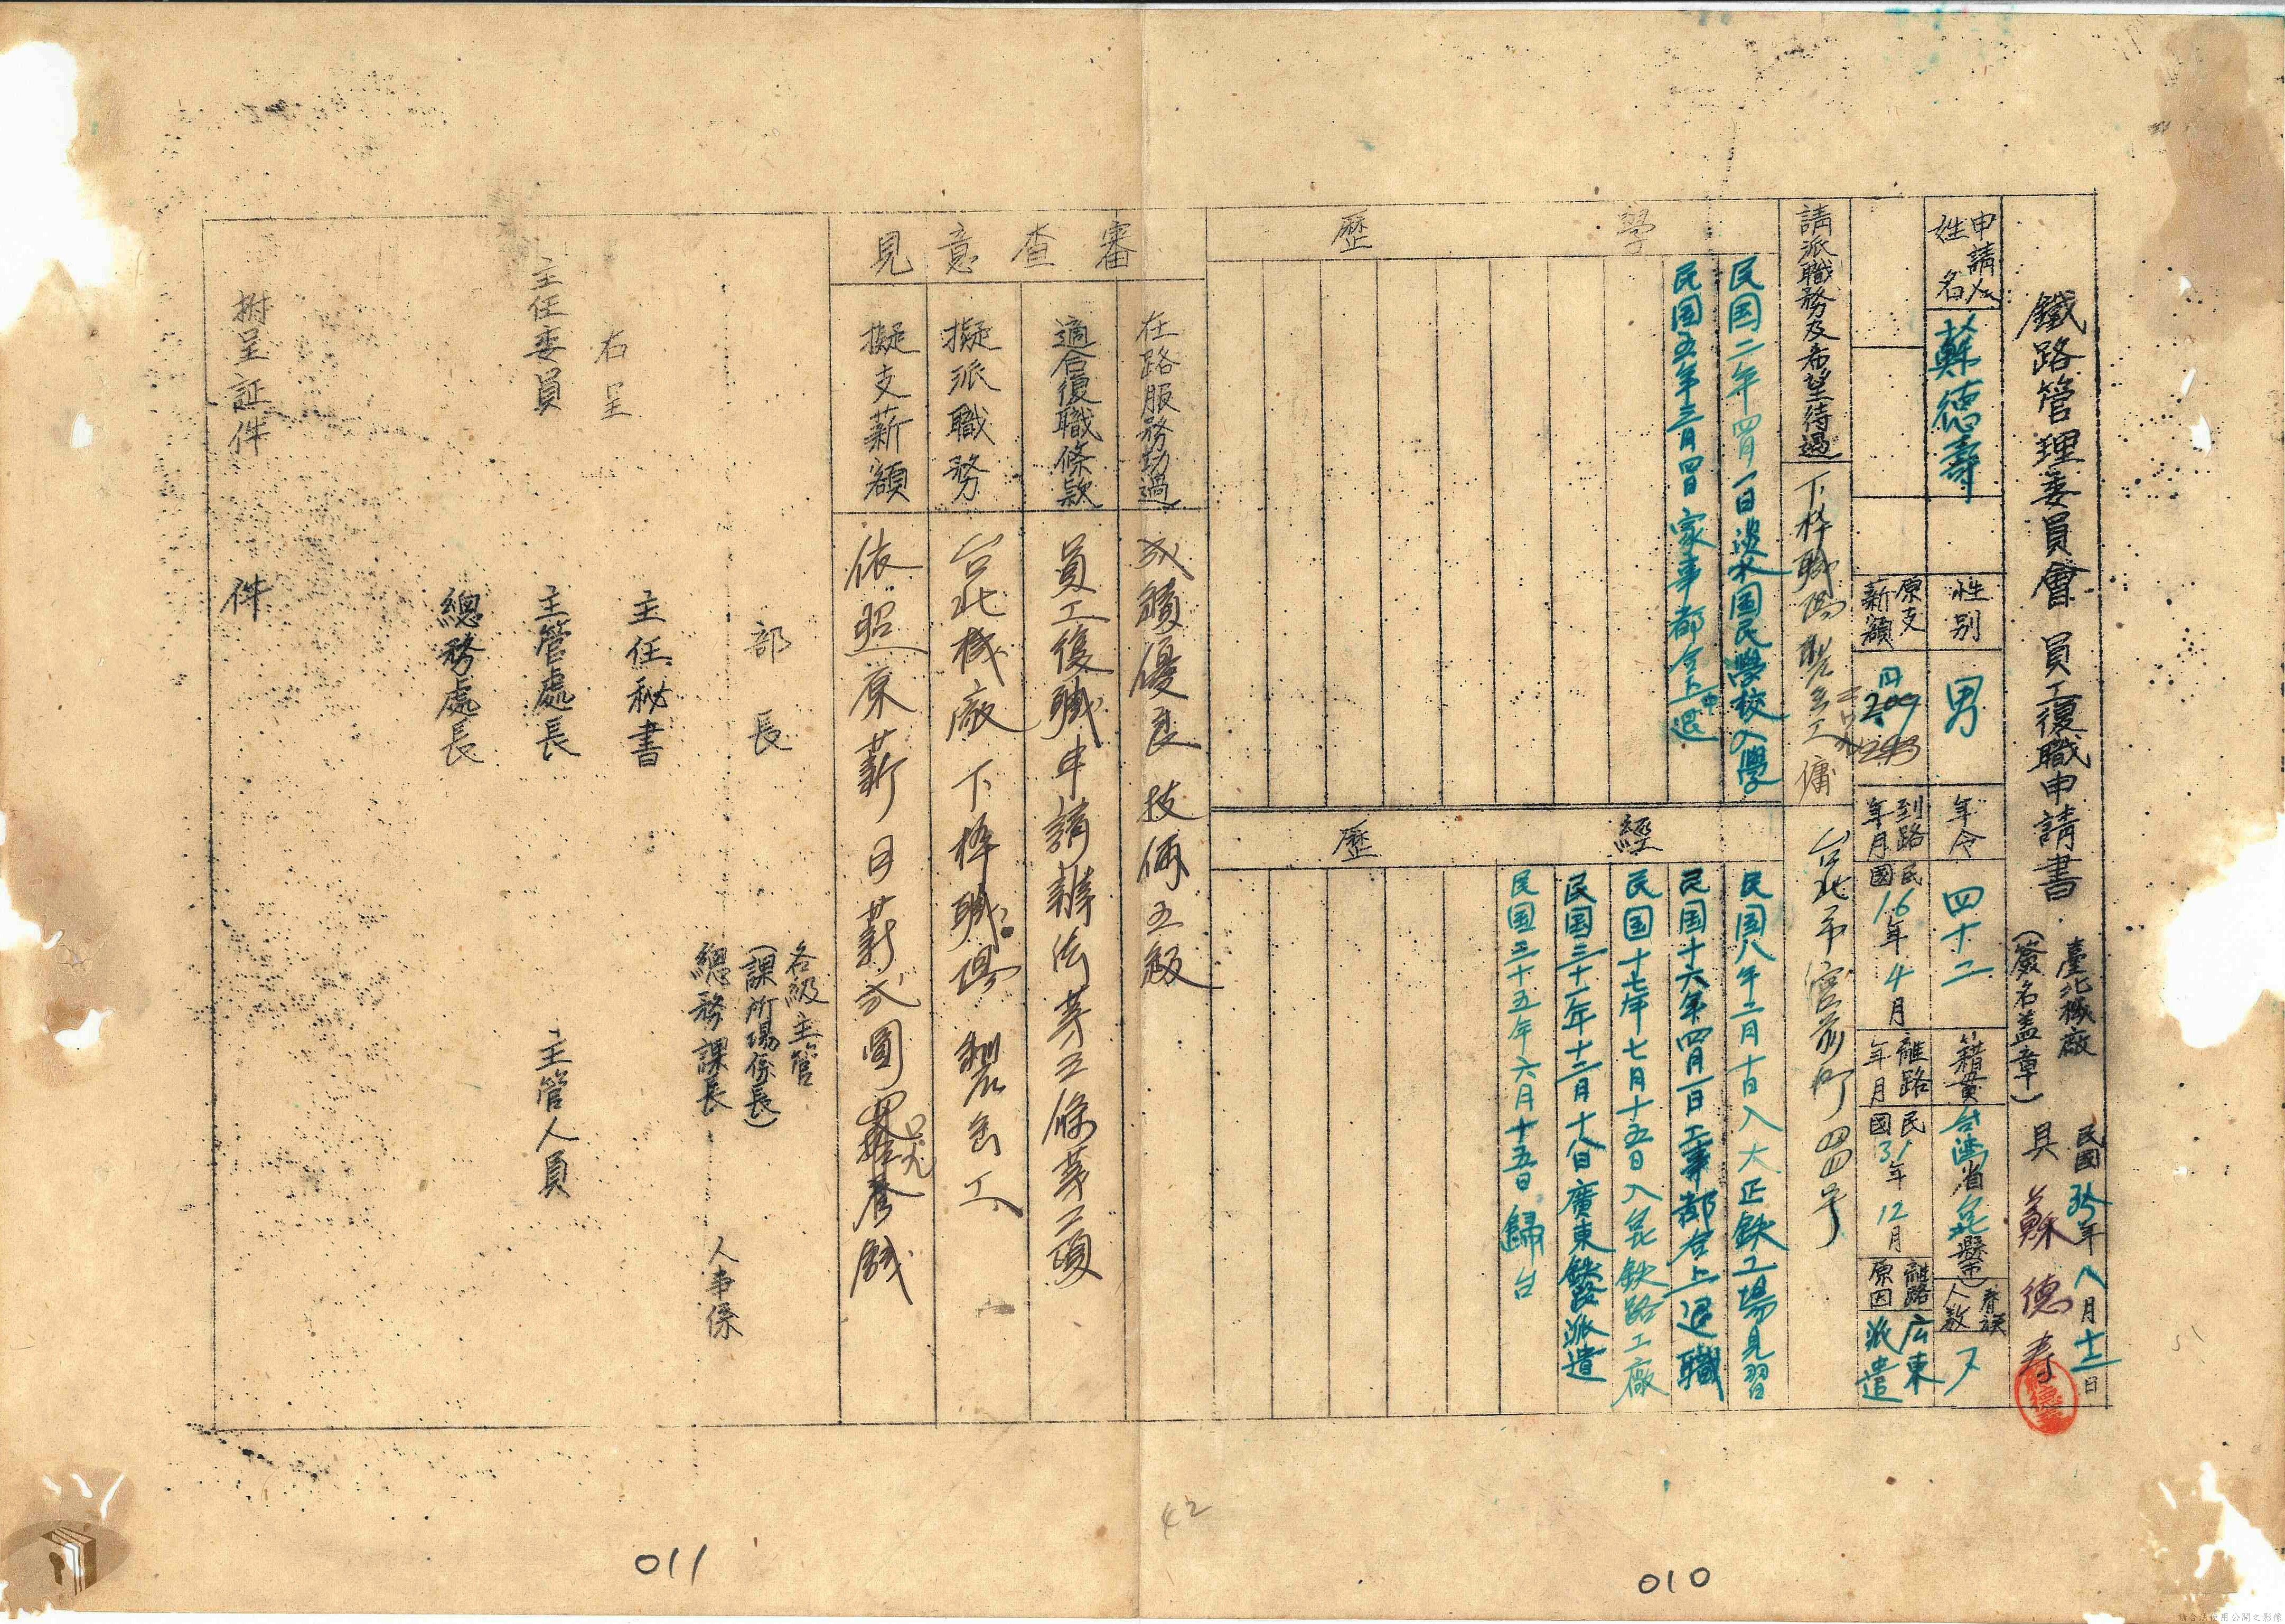 鐵路管理委員會員工復職申請書
臺北機廠 民國35年八月十二日
(簽名盖章) 具 蘇德寿
申請人姓名 蘇德壽 性別 男 年令 四十二 籍貫 台湾省台北縣市 眷族人数 7
原支薪額 円 209 到路年月 民國16年4月 離路年月 民國31年12月 離路原因 広東派遣
請派職務及希望待遇 下枠職場製缶工傭 台北市宮前町四四号
學歷
民国二年四月一日淡水国民學校入學
民国五年三月四日家事都合上中退
經歷
民国八年二月十日入大正鉄工場見習
民国十六年四月一日工事都合上退職
民国十七年七月十五日入台北鉄路工廠
民国三十一年十二月十八日廣東鉄路派遣
民国三十五年六月十五日歸台
審查意見
在路服務功過 成績優良技倆五級
適合復職條欵 員工復職申請辦法第五條第二項
擬派職務 台北機廠下枠職場製缶工
擬支薪額 依照原薪日薪弍圓
部長
各級主管
(課所場係長)
總務課長 人事係
主任秘書
右呈
主任委員
主管處長 主管人員
總務處長
附呈証件 件
42
010
011